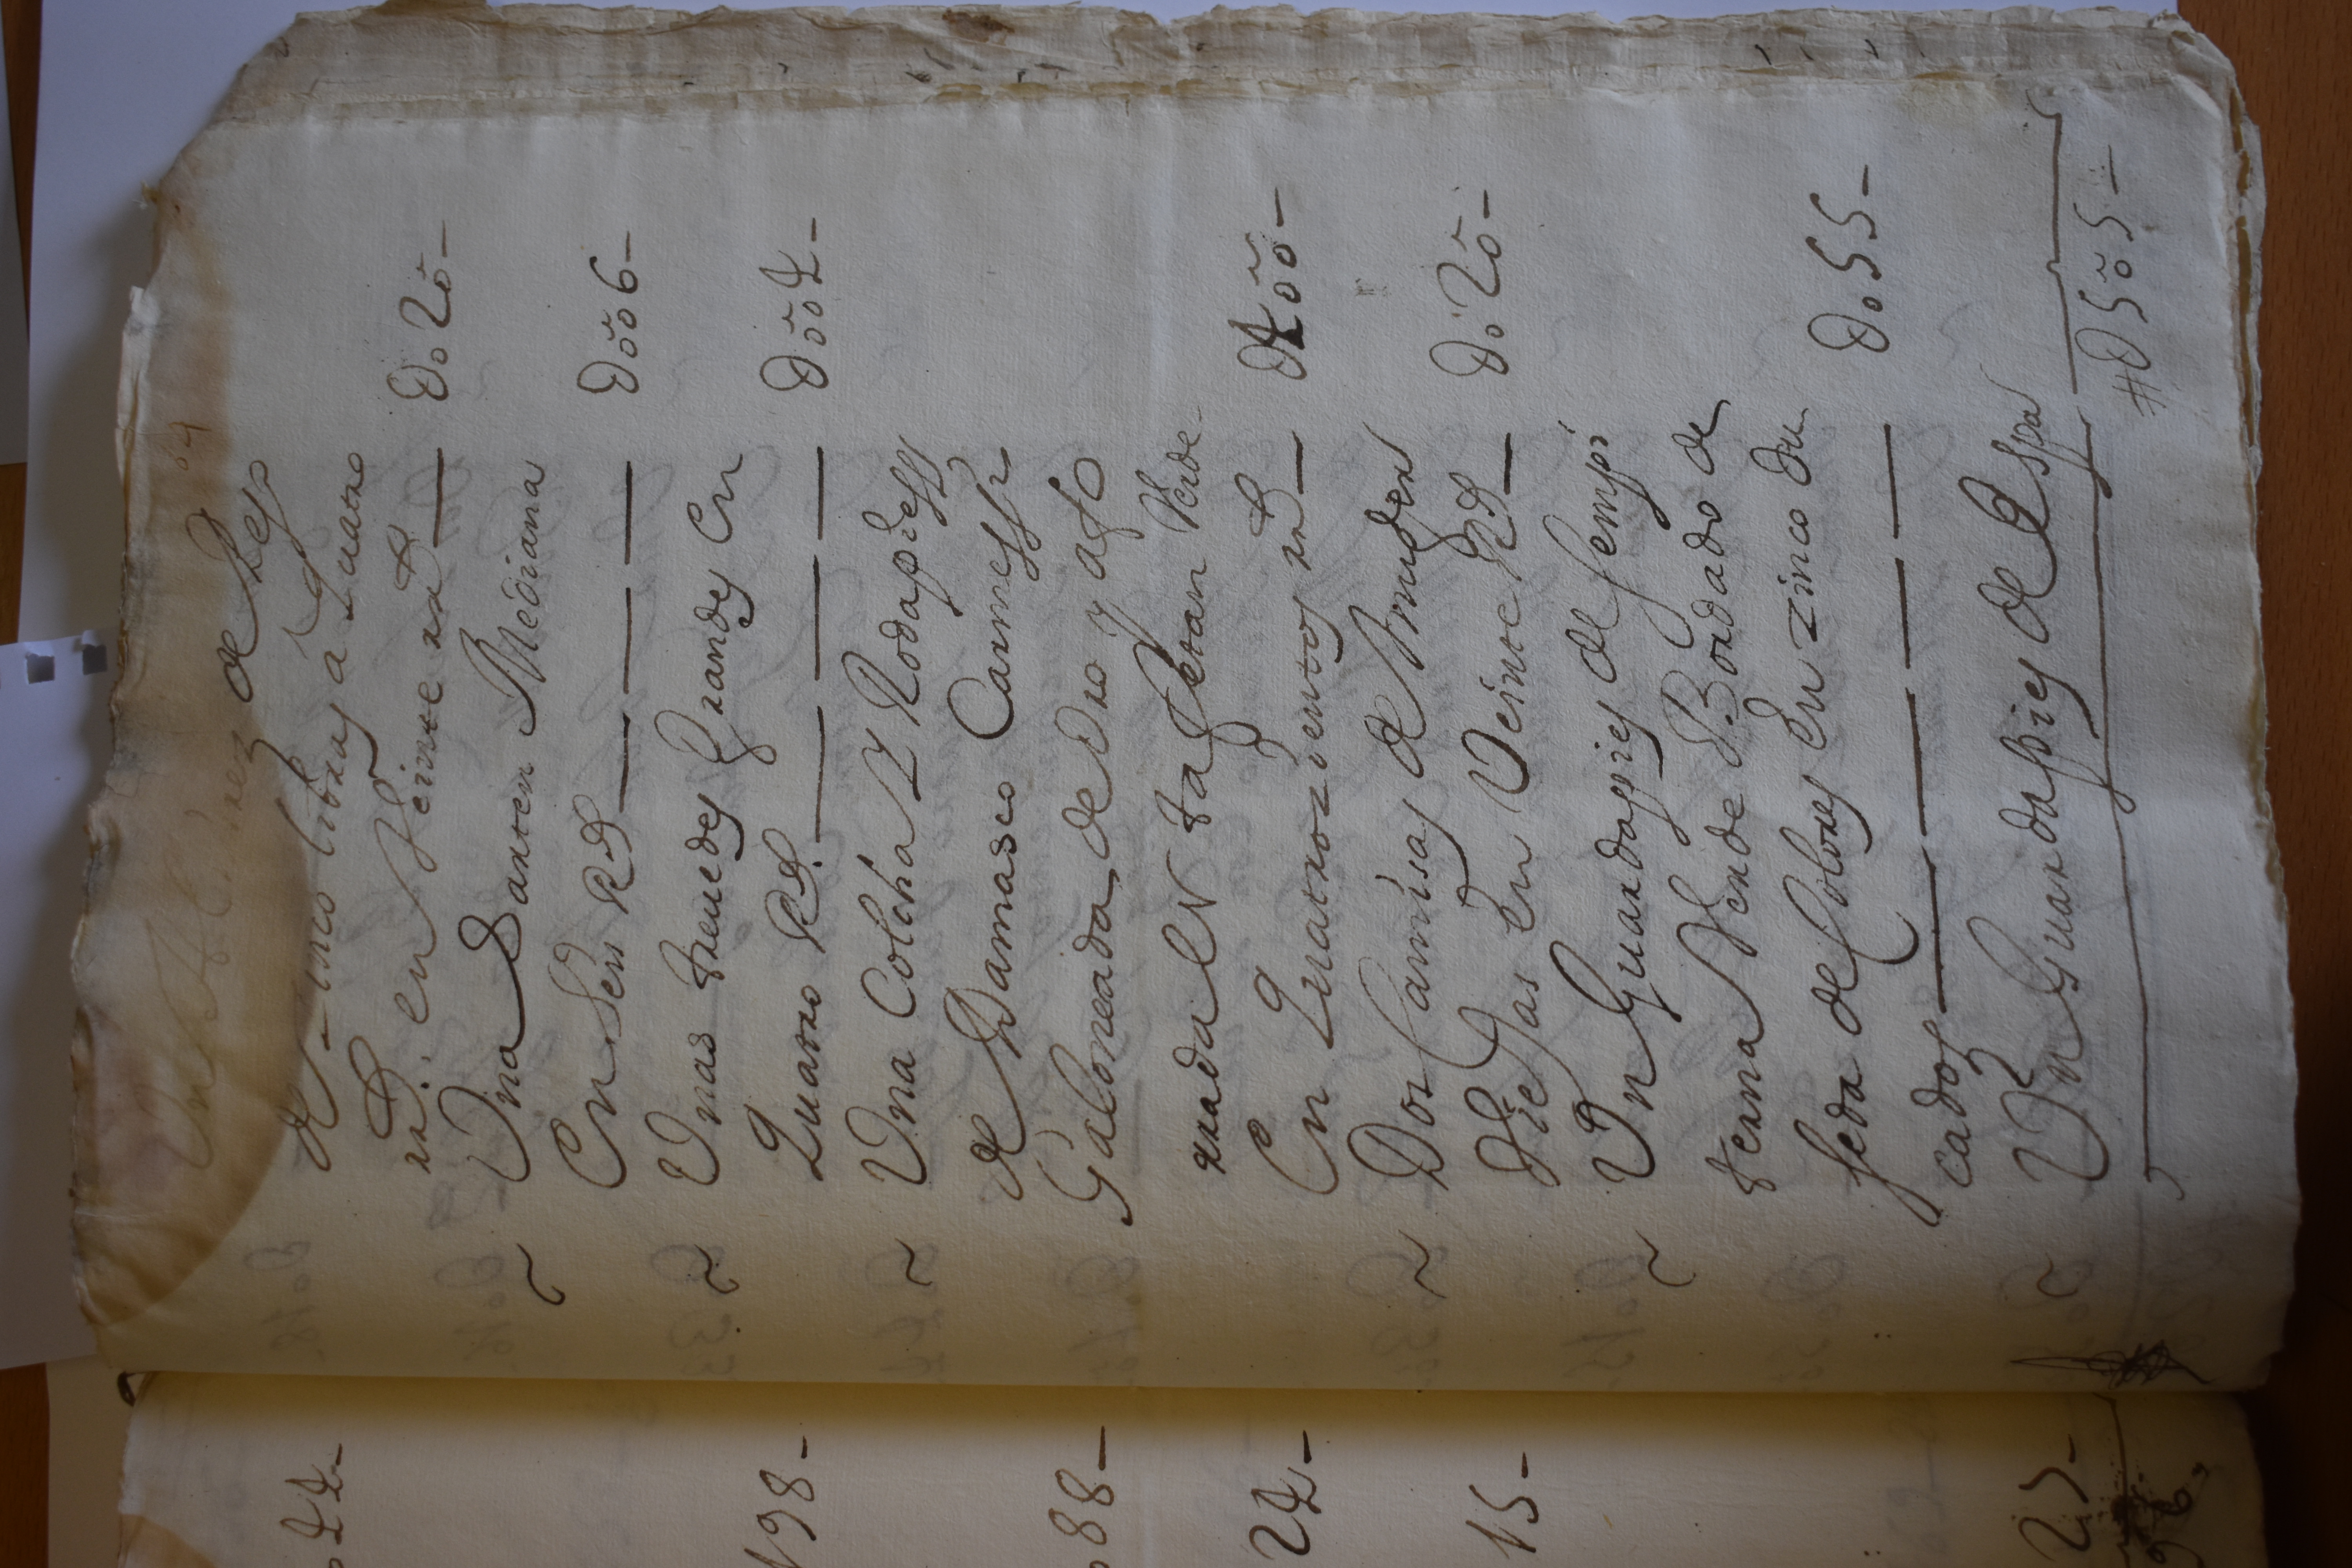 Un Almirez de Pesso
de zinco libras a quatro
rs. en Veinte rs — D.o20-
Una Sarten Mediana
En Seis Rs — D.oo6-
Unas treuedes Grandes En
Quatro Rs. — D.oo4-
Una Colcha Y Rodapiess
de Damasco Carmessi
Galoneada de Oro y afo
rrada en tafetan Verde
En Quatrozientos rs — D4oo-
Dos Camisas de Muger
Viejas En Veinte Rs — D.o20-
Un Guardapies de sempi
terna Verde Bordado de
seda de Colores En zinco du
cados — D.o55-
Un Guardapies de Espar
#D5o5-
44-
198-
88-
24-
15-
25-